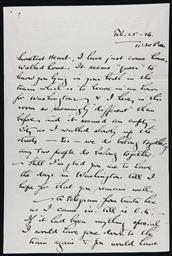 Feb. 25 - 26.
11:30 P.M.
Sweetest Heart, I have just come home,
walked home. It seems "queer" to
know you lying in your bed in the
train which is to leave in an hour
for Washington, & I here in this
room so seemingly different than
before, and it seemed an empty
city as I walked slowly up the
streets — Yes — we do belong together, if
any two people do belong together
— Still I'm glad you are to have
the days in Washington till I
hope for that you remain well.
— A telegram from
as I came in. All is O.K.
If it had been anything special
I would have gone down to the
train again & you would have